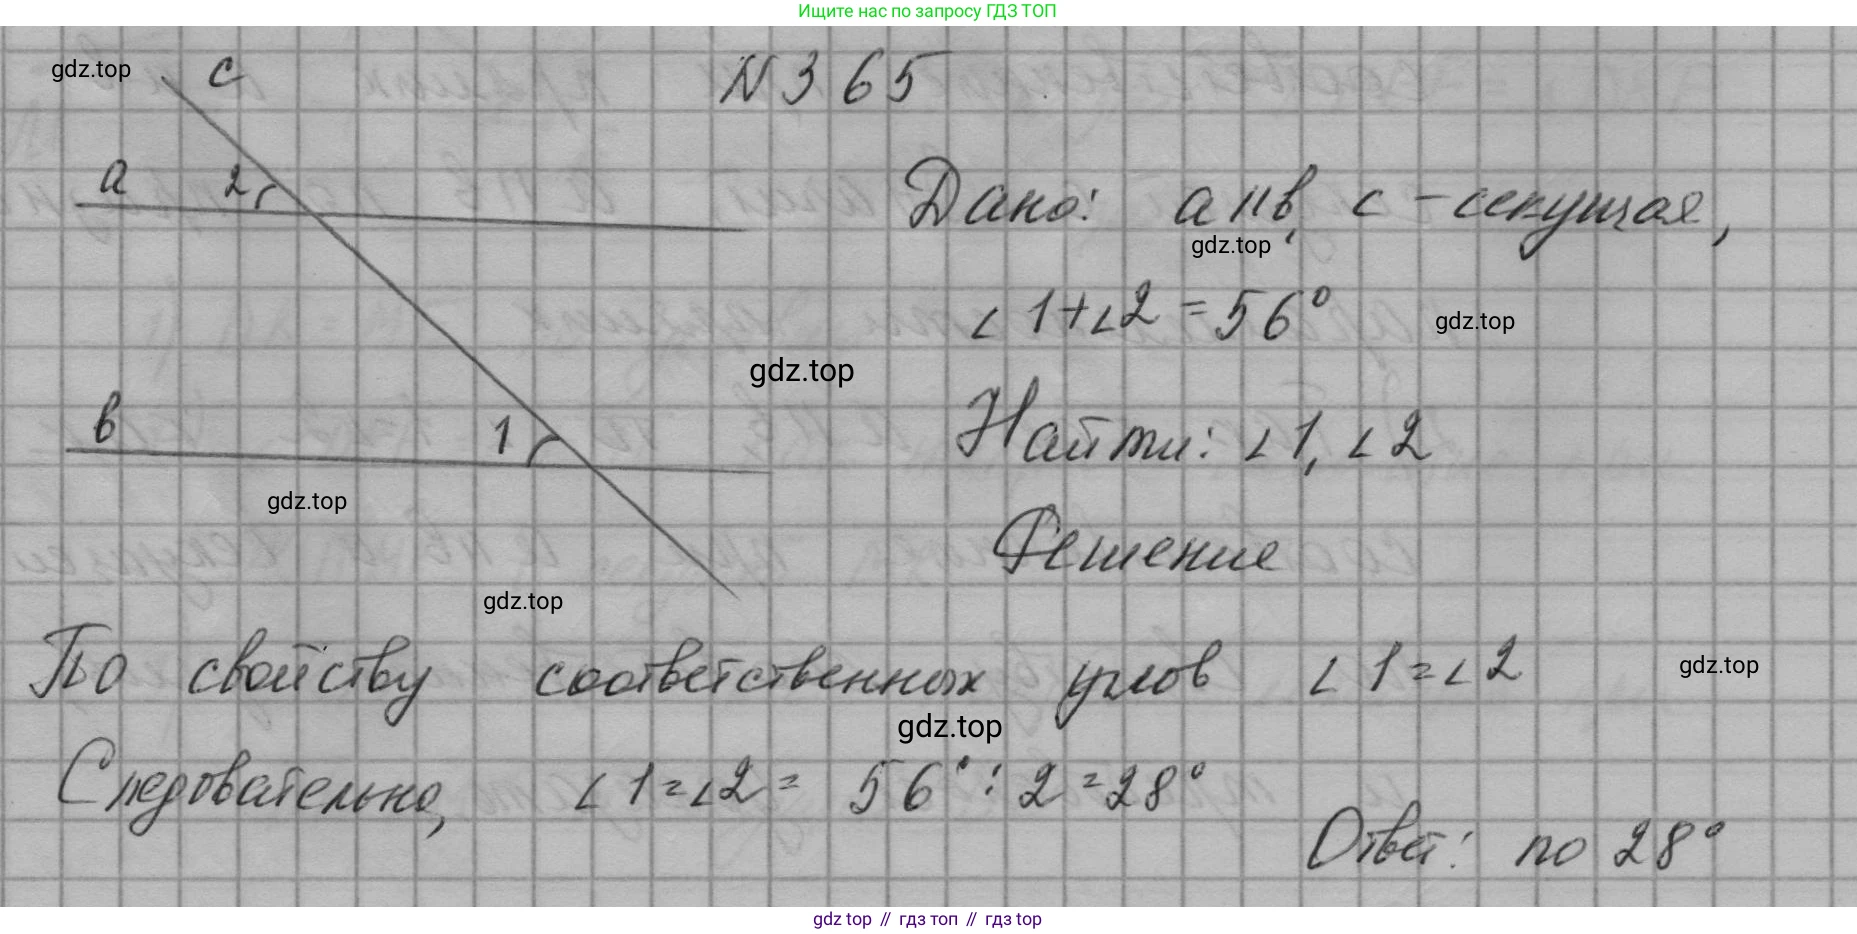 Ищите нас по запросу ГДЗ ТОП
gdz.top
с
N 365
а
2
Дано: а || в, с – секущая,
gdz.top
∠1+∠2 = 56°
gdz.top
gdz.top
в
1
Найти: ∠1, ∠2
gdz.top
Решение
gdz.top
По свойству соответственных углов ∠1=∠2
gdz.top
gdz.top
Следовательно, ∠1=∠2= 56° : 2 = 28°
Ответ: по 28°
gdz top // гдз топ // гдз top